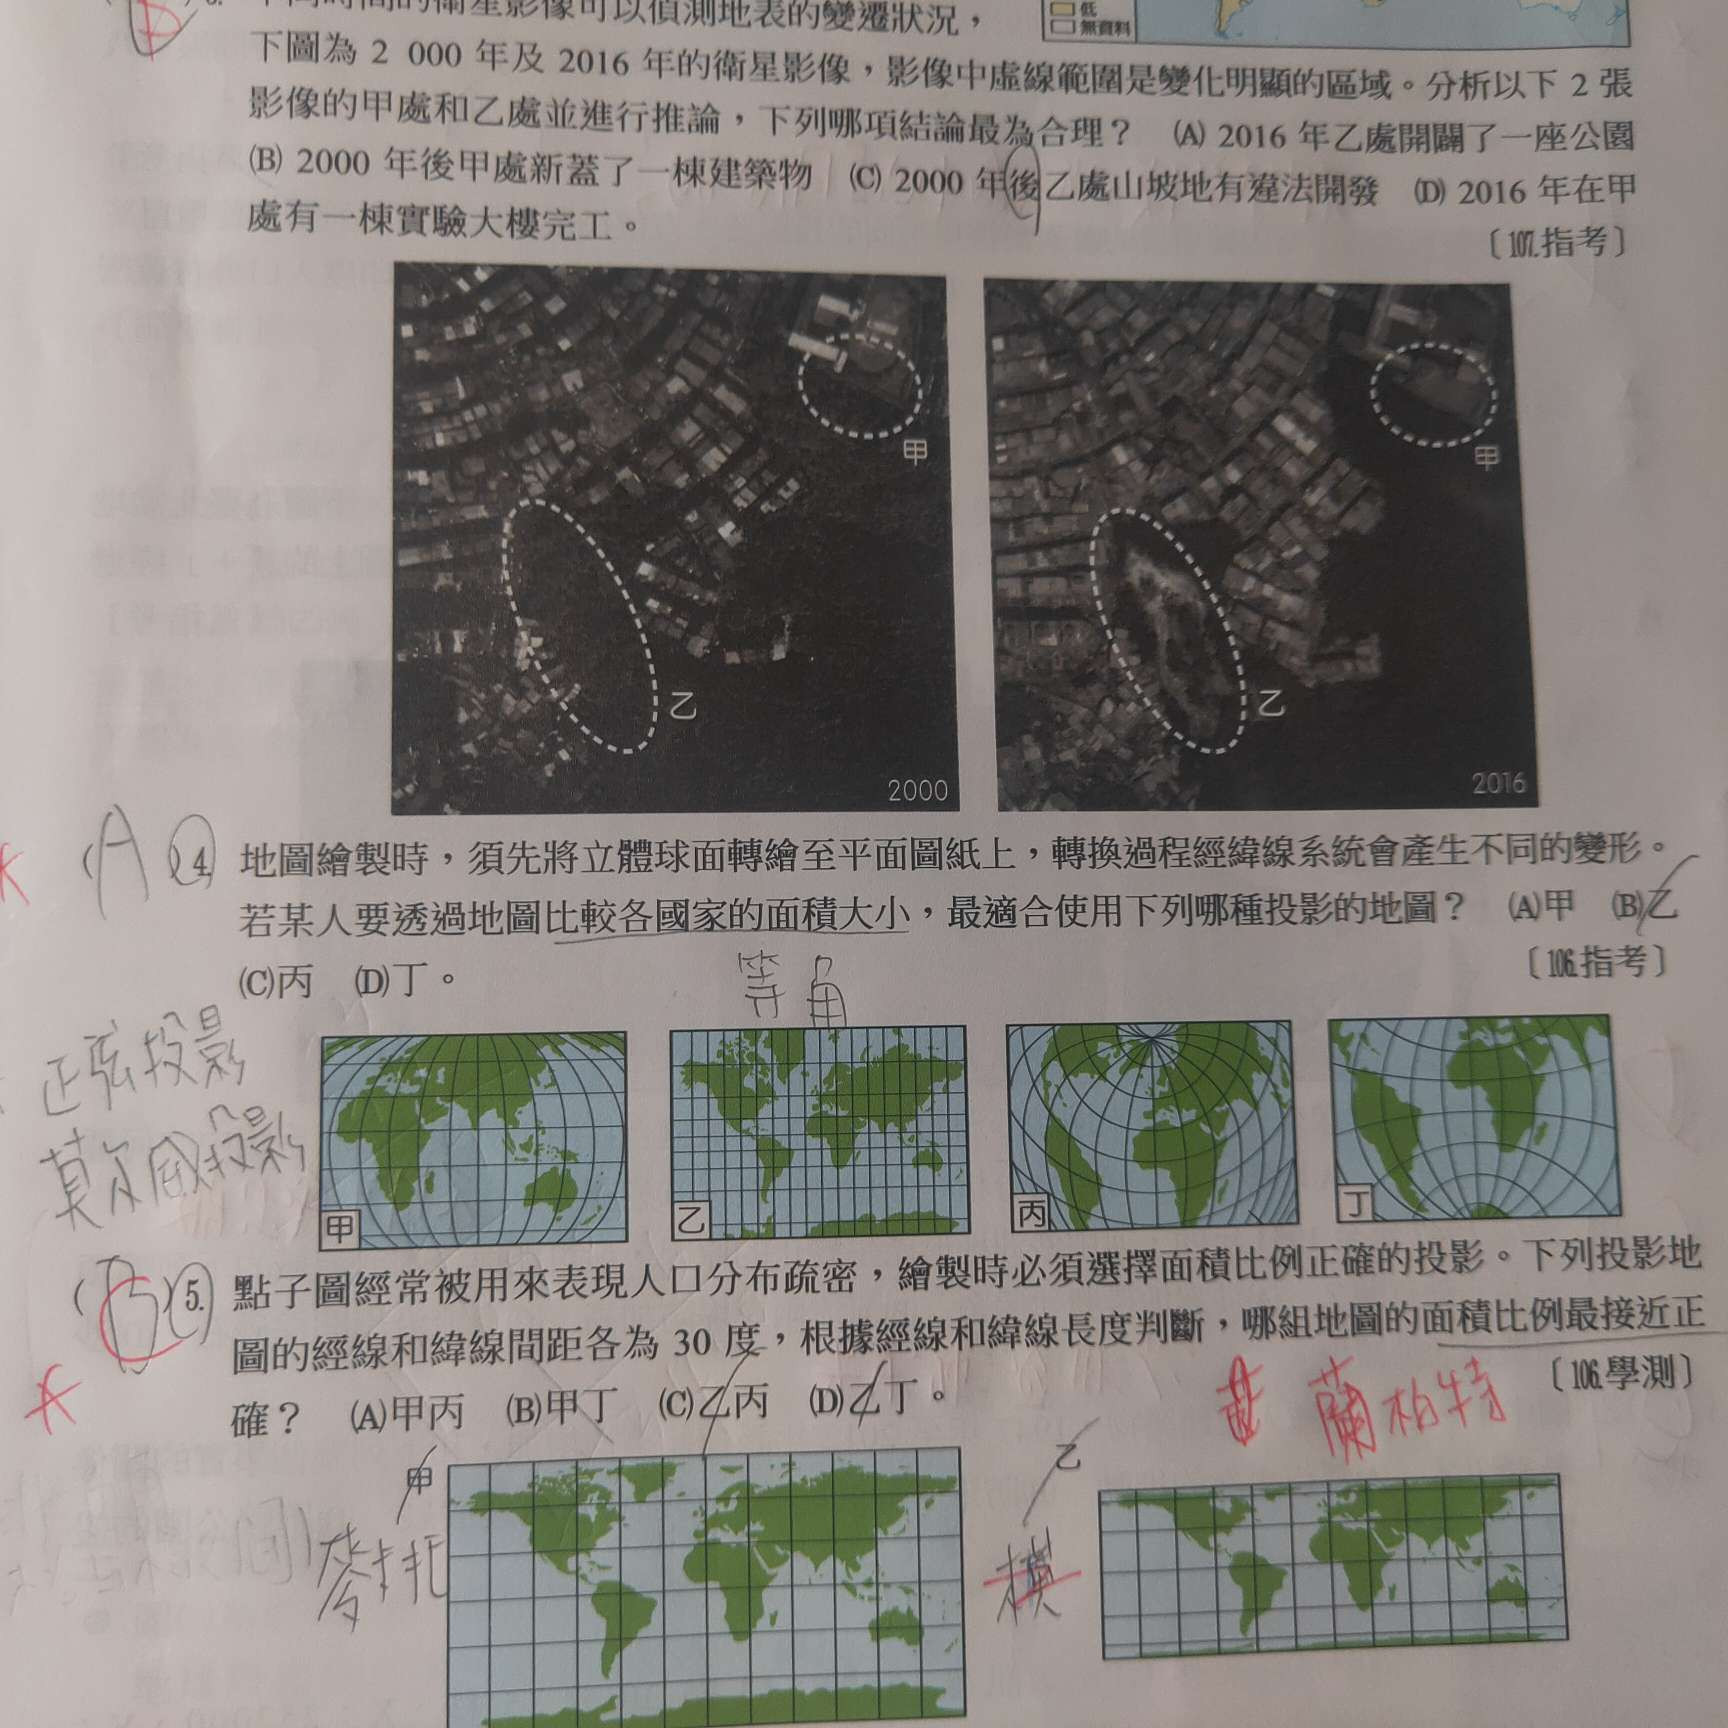 低
無資料
不同時間的衛星影像可以偵測地表的變遷狀況，
下圖為 2 000 年及 2016 年的衛星影像，影像中虛線範圍是變化明顯的區域。分析以下 2 張
影像的甲處和乙處並進行推論，下列哪項結論最為合理？ (A) 2016 年乙處開闢了一座公園
(B) 2000 年後甲處新蓋了一棟建築物 (C) 2000 年後乙處山坡地有違法開發 (D) 2016 年在甲
處有一棟實驗大樓完工。
〔107.指考〕
甲
乙
2000
甲
乙
2016
(A)4. 地圖繪製時，須先將立體球面轉繪至平面圖紙上，轉換過程經緯線系統會產生不同的變形。
若某人要透過地圖比較各國家的面積大小，最適合使用下列哪種投影的地圖？ (A)甲 (B)乙
(C)丙 (D)丁。
〔106.指考〕
等角
正弦投影
莫尔威投影
甲
乙
丙
丁
(B)5. 點子圖經常被用來表現人口分布疏密，繪製時必須選擇面積比例正確的投影。下列投影地
圖的經線和緯線間距各為 30 度，根據經線和緯線長度判斷，哪組地圖的面積比例最接近正
確？ (A)甲丙 (B)甲丁 (C)乙丙 (D)乙丁。
〔106.學測〕
蘭柏特
甲
乙
麥卡托
橫